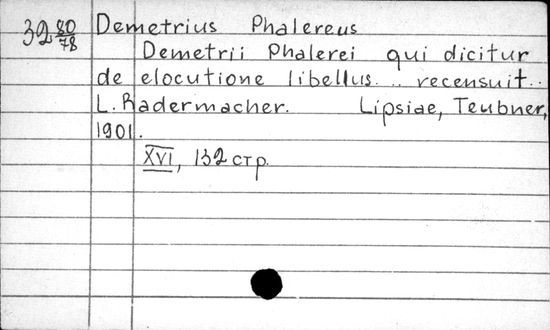 32 80/78 Demetrius Phalereus
Demetrii Phalerei qui dicitur
de elocutione libellus .. recensuit ..
L. Radermacher. Lipsiae, Teubner,
1901.
XVI, 132 стр.